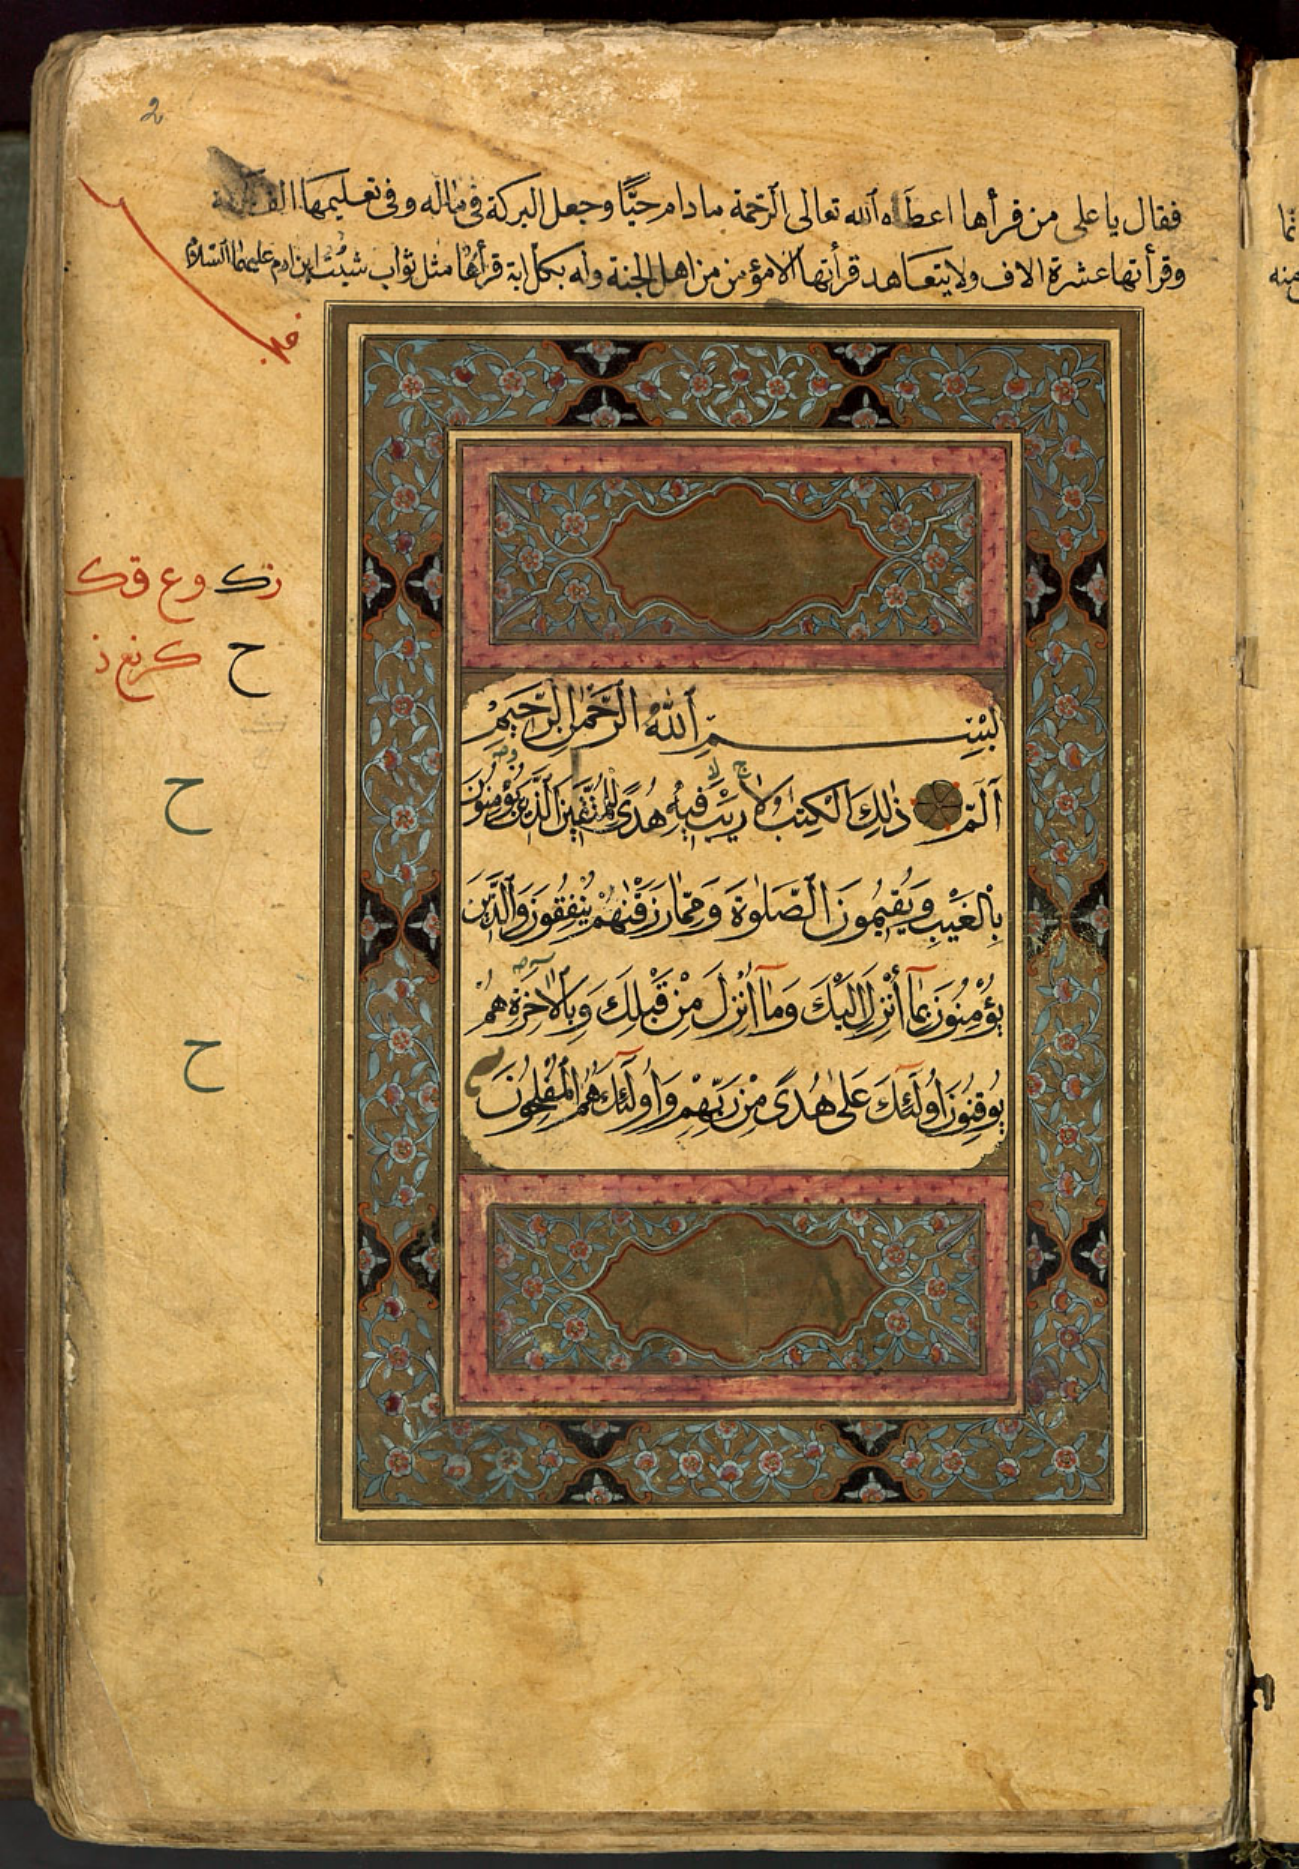 2
فقال يا على من قرأها اعطاه الله تعالى الرحمة مادام حيًّا وجعل البركة فى ماله وفى تعليمها الف
وقرأتها عشرة الاف ولا يتعاهد قرأتها الا مؤمن من اهل الجنة وله بكل اية قرأها مثل ثواب شيث ابن ادم عليهما السلام
بِسْمِ ٱللَّهِ ٱلرَّحْمٰنِ ٱلرَّحِيمِ
الٓمٓ ذٰلِكَ الْكِتٰبُ لَا رَيْبَ فِيهِ هُدًى لِلْمُتَّقِينَ الَّذِينَ يُؤْمِنُونَ
بِالْغَيْبِ وَيُقِيمُونَ الصَّلٰوةَ وَمِمَّا رَزَقْنٰهُمْ يُنْفِقُونَ وَالَّذِينَ
يُؤْمِنُونَ بِمَٓا أُنْزِلَ إِلَيْكَ وَمَٓا أُنْزِلَ مِنْ قَبْلِكَ وَبِالْاٰخِرَةِ هُمْ
يُوقِنُونَ أُولَٓئِكَ عَلٰى هُدًى مِنْ رَبِّهِمْ وَأُولَٓئِكَ هُمُ الْمُفْلِحُونَ
ح
ح
ح